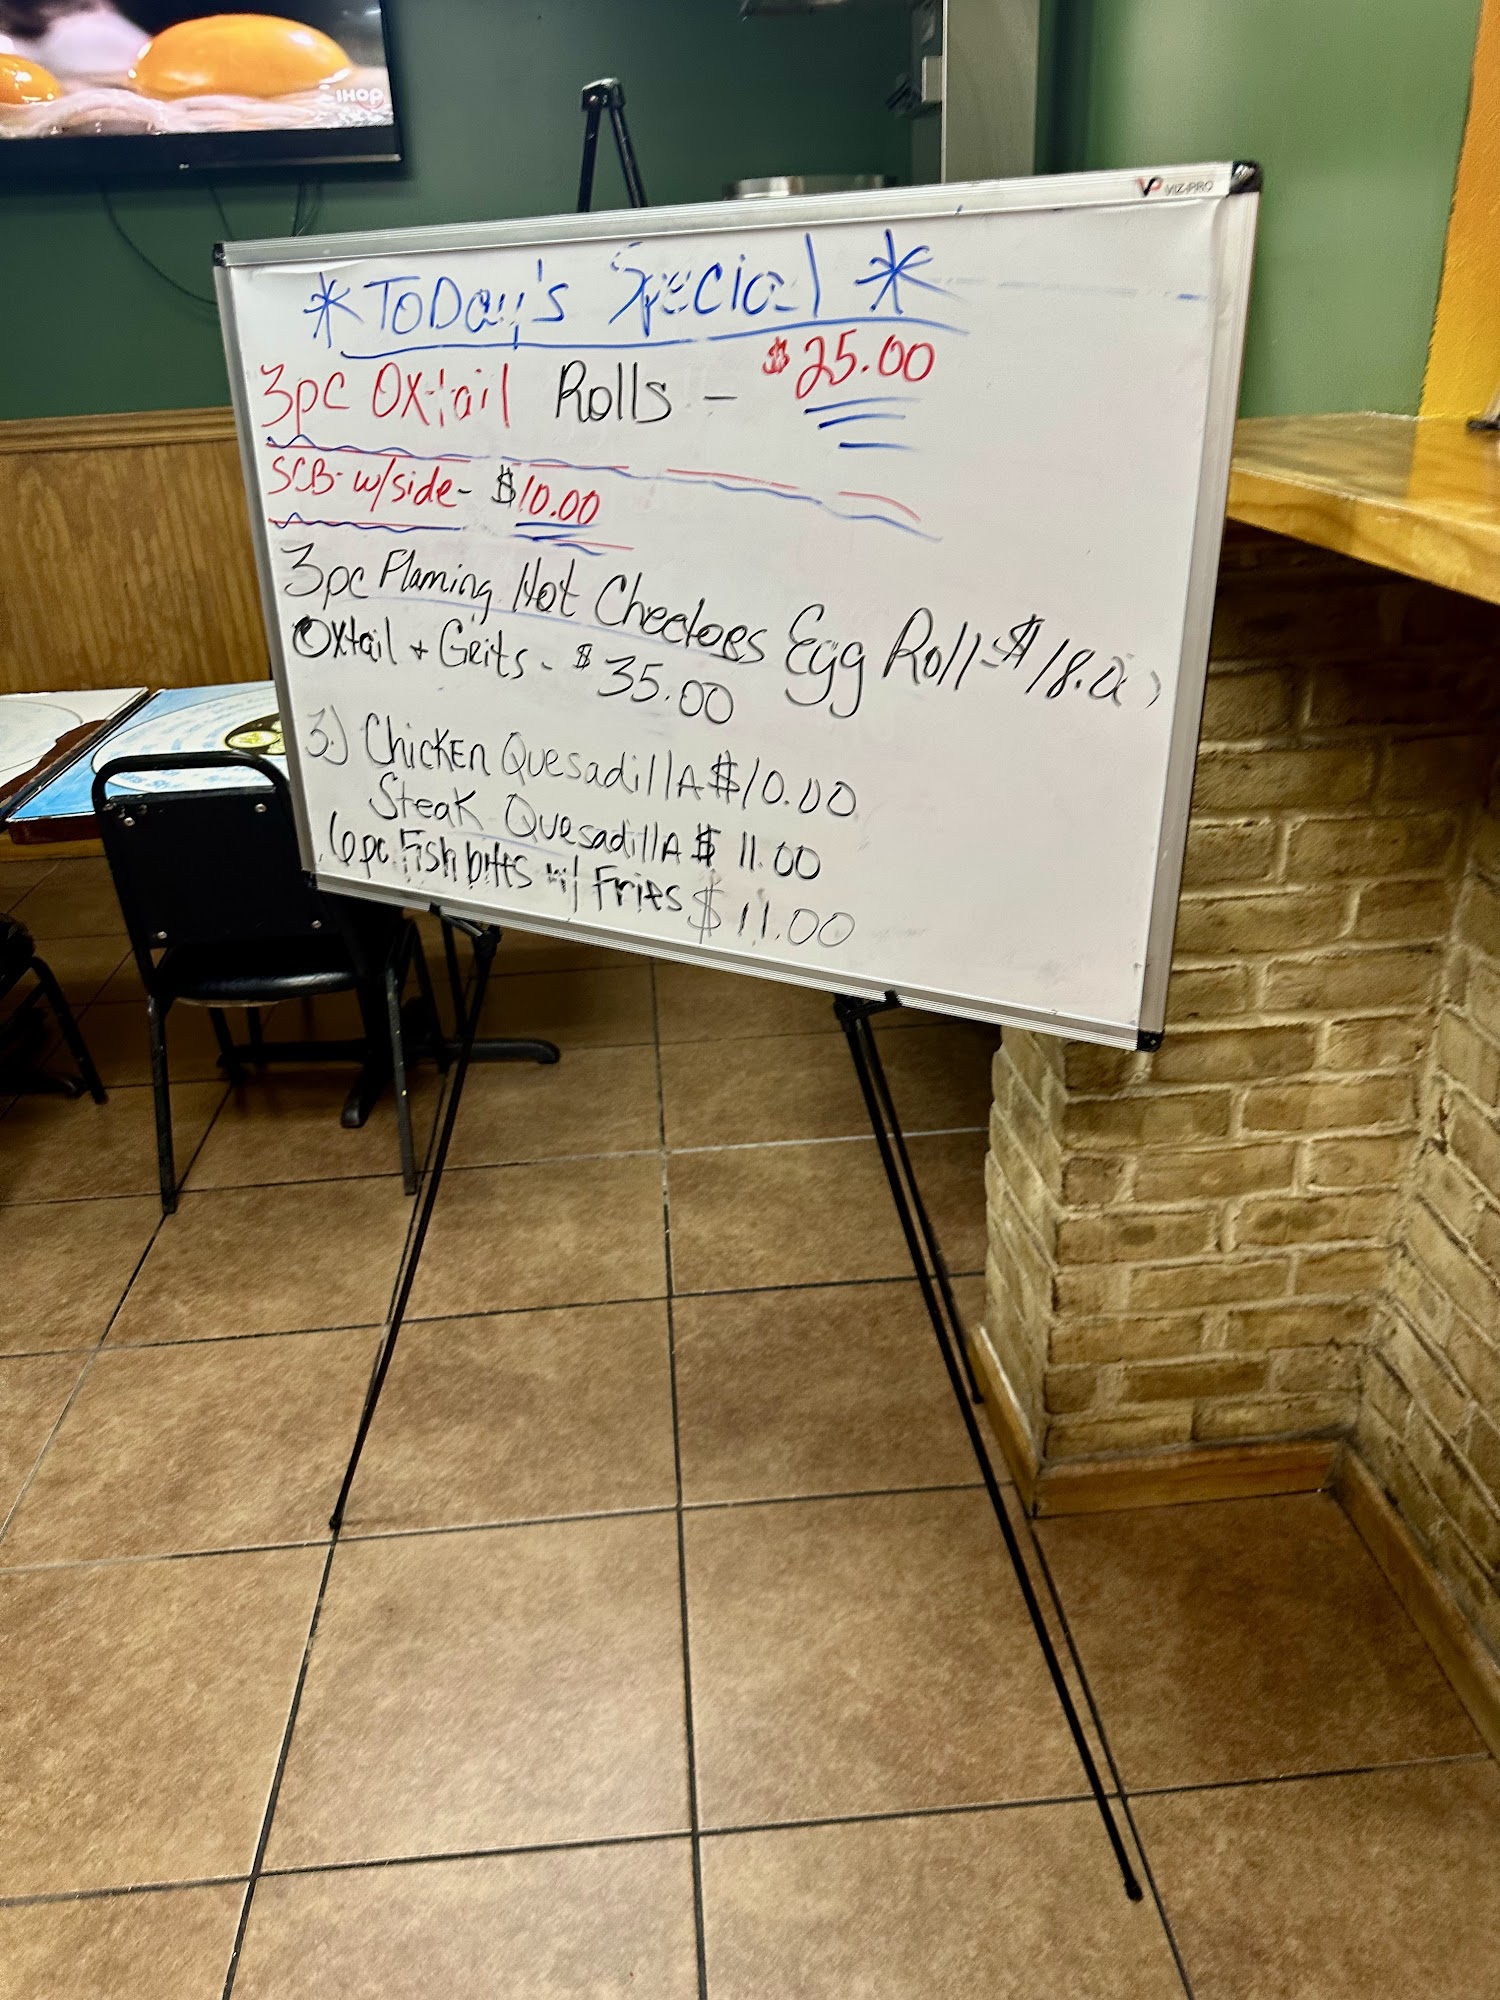 IHOP
VP VIZ-PRO
*ToDay's Special*
3pc Oxtail Rolls - $25.00
SCB- w/side- $10.00
3pc Flaming Hot Cheetoes Egg Roll-$18.00
Oxtail + Grits - $35.00
3) Chicken QuesadillA $10.00
Steak QuesadillA $ 11.00
6pc Fish bites w/ Fries $11.00